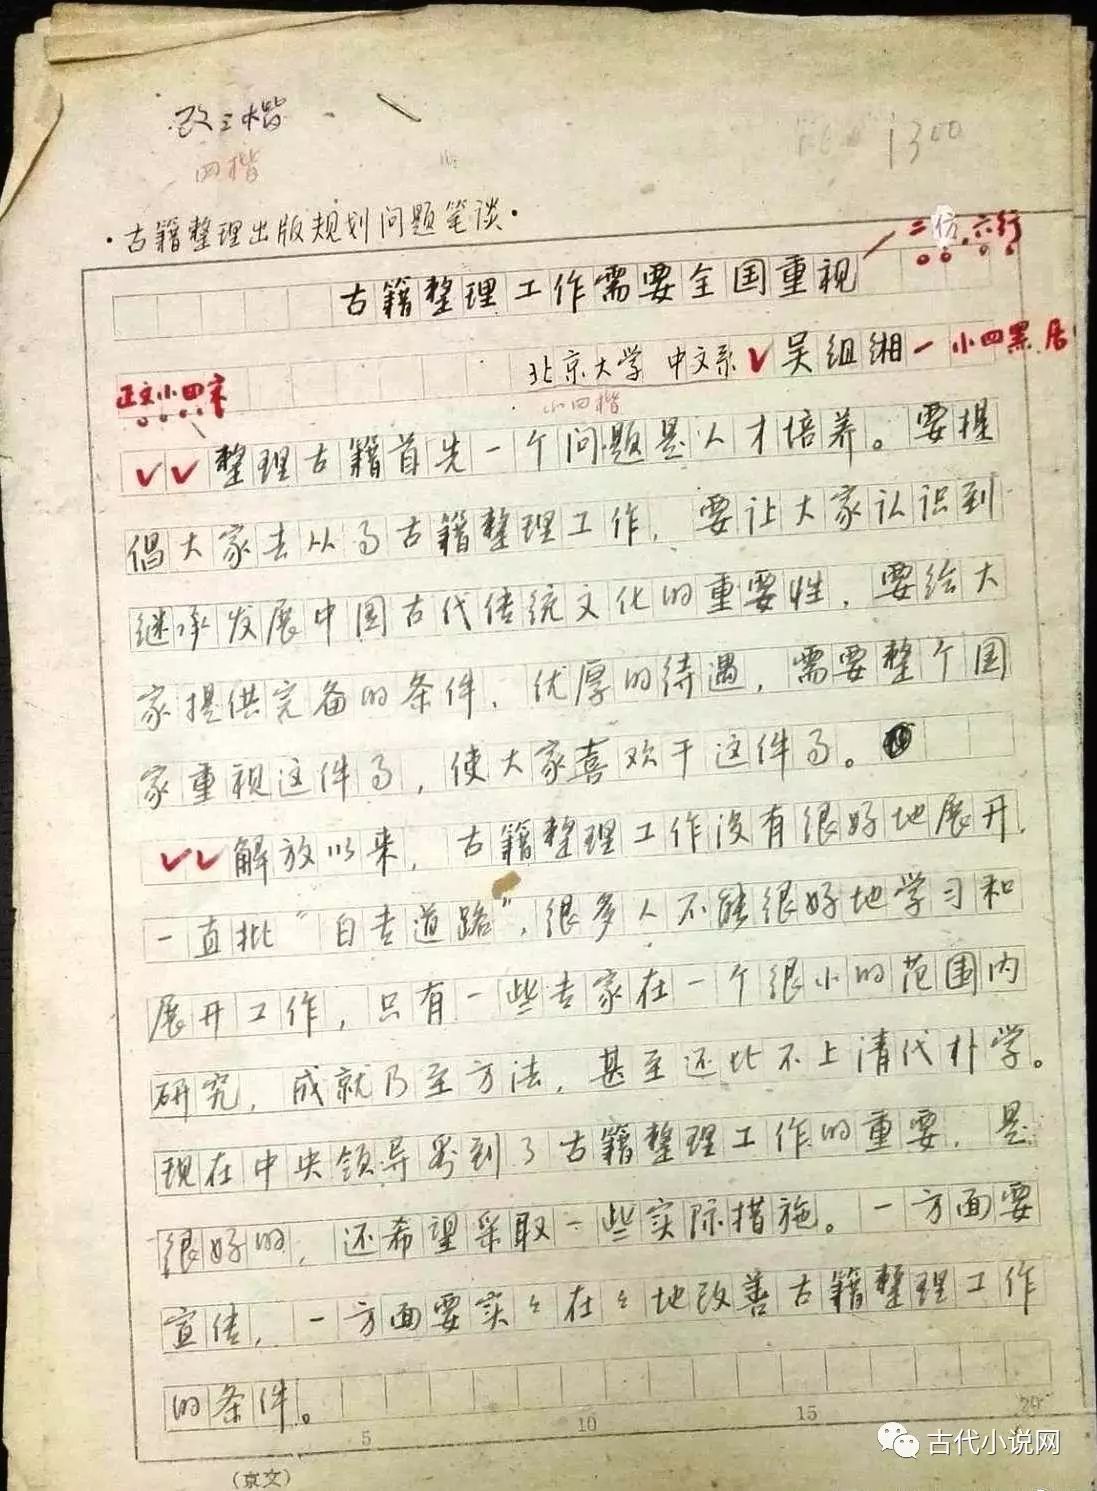 改三楷
四楷
1300
·古籍整理出版规划问题笔谈·
二仿.六行
古籍整理工作需要全国重视
北京大学 中文系 吴组缃 小四黑.居
小四楷
正文小四宋
整理古籍首先一个问题是人才培养。要提
倡大家去从事古籍整理工作，要让大家认识到
继承发展中国古代传统文化的重要性，要给大
家提供完备的条件、优厚的待遇，需要整个国
家重视这件事，使大家喜欢干这件事。
解放以来，古籍整理工作没有很好地展开，
一直批“白专道路”，很多人不能很好地学习和
展开工作，只有一些专家在一个很小的范围内
研究，成就乃至方法，甚至还比不上清代朴学。
现在中央领导看到了古籍整理工作的重要，是
很好的，还希望采取一些实际措施。一方面要
宣传，一方面要实々在々地改善古籍整理工作
的条件。
5 10 15 20
(京文)
古代小说网